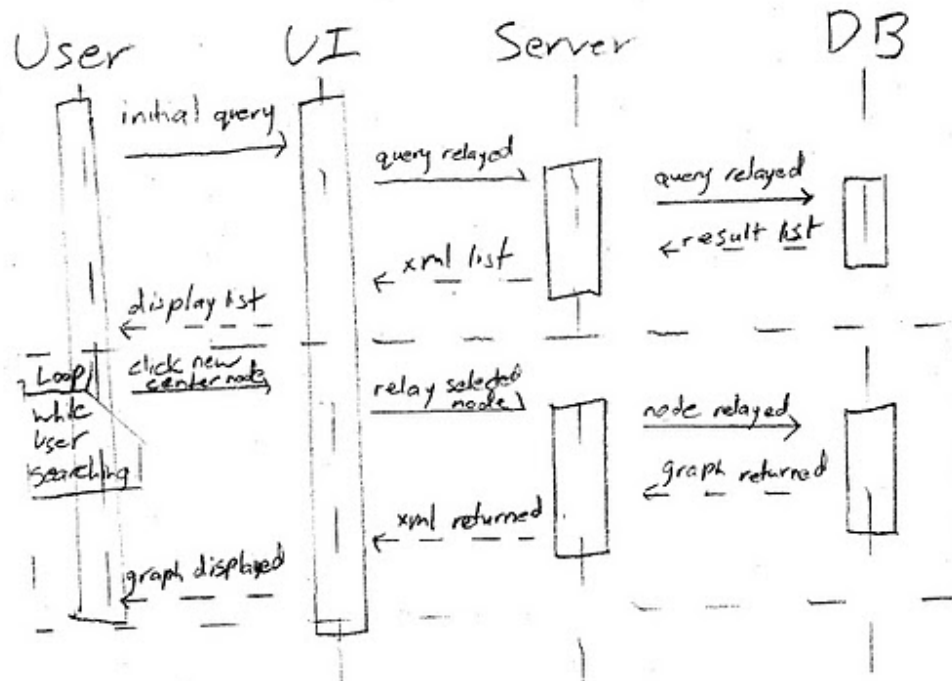 User
UI
Server
DB
initial query
query relayed
query relayed
result list
xml list
display list
Loop
while
user
searching
click new
center node
relay selected
node
node relayed
graph returned
xml returned
graph displayed